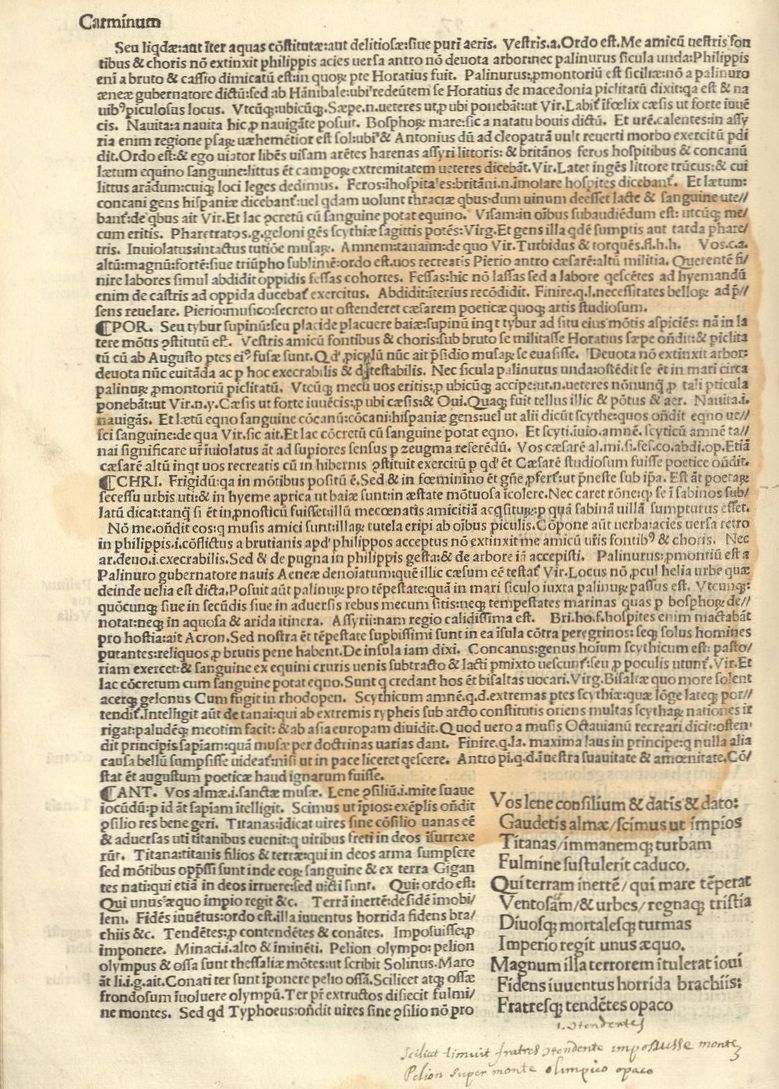 Carminum
Seu liqdæ:aut iter aquas cõstitutæ:aut delitiosæ:siue puri aeris. Vestris.a.Ordo est.Me amicũ uestris fon
tibus & choris nõ extinxit philippis acies uersa antro nõ deuota arbor:nec palinurus sicula unda:Philippis
eni a bruto & cassio dimicatũ est:in quoꝝ pte Horatius fuit. Palinurus:pmontoriũ est siciliæ:nõ a palinuro
æneæ gubernatore dictũ:sed ab Hãnibale:ubi redeũtem se Horatius de macedonia piclitatũ dixit:qa est & na
uibꝰ piculosus locus. Vtcũqꝫ:ubicũqꝫ.Sæpe.n.ueteres ut,p ubi ponebãt:ut Vir.Labit̃ ifœlix cæsis ut forte iuuẽ
cis. Nauita:a nauita hic,p nauigãte posuit. Bosphoꝝ mare:sic a natatu bouis dictũ. Et urẽ.calentes:in assy
ria enim regione psaꝝ uæhemẽtior est sol:ubiꝰ & Antonius dũ ad cleopatrã uult reuerti morbo exercitũ pdi
dit.Ordo est:& ego uiator libẽs uisam arẽtes harenas assyri littoris: & britãnos feros hospitibus & concanũ
lætum equino sanguine:littus ẽt campoꝝ extremitatem ueteres dicebãt.Vir.Latet ingẽs littore trũcus: & cui
littus arãdum:cuiqꝫ loci leges dedimus. Feros:ĩhospitales:britãni.n.imolare hospites dicebant̃. Et lætum:
concani gens hispaniæ dicebant̃:uel qdam uolunt thraciæ qbus:dum uinum deesset lacte & sanguine ute//
bant̃:de qbus ait Vir.Et lac ꝯcretũ cũ sanguine potat equino. Visam:in oĩbus subaudiẽdum est: utcũqꝫ me/
cum eritis. Pharetratos.g.geloni gẽs scythiæ sagittis potẽs:Virg.Et gens illa qdẽ sumptis aut tarda phare/
tris. Inuiolatus:intactus tutiõe musaꝝ. Amnem:tanaim:de quo Vir.Turbidus & torquẽs.fl.h.h. Vos.c.a.
altũ:magnũ:fortẽ:siue triũpho sublimẽ:ordo est.uos recreatis Pierio antro cæsarẽ:altũ militia. Querentẽ fi/
nire labores simul abdidit oppidis fessas cohortes. Fessas:hic nõ lassas sed a labore qescẽtes ad hyemandũ
enim de castris ad oppida ducebat̃ exercitus. Abdidit:iterius recõdidit. Finire.q.l.necessitates belloꝝ ad p̃/
sens reuelare. Pierio:musico:secreto ut ostenderet cæsarem poeticæ quoqꝫ artis studiosum.
¶POR. Seu tybur supinũ:seu placide placuere baiæ:supinũ inqt tybur ad situ eius mõtis aspiciẽs: nã in la
tere mõtis ꝯstitutũ est. Vestris amicũ fontibus & choris:sub bruto se militasse Horatius sæpe oñdit:& piclita
tũ cũ ab Augusto ptes eiꝰ fusæ sunt.Qd,piculũ nũc ait p̃sidio musaꝝ se euasisse. Deuota nõ extinxit arbor:
deuota nũc euitãda ac p hoc execrabilis & detestabilis. Nec sicula palinurus unda:ostẽdit se ẽt in mari circa
palinuꝝ pmontoriũ piclitatũ. Vtcũqꝫ mecũ uos eritis:p ubicũqꝫ accipe:ut.n.ueteres nõnunqꝫ p tali pticula
ponebãt:ut Vir.n.y.Cæsis ut forte iuuẽcis:p ubi cæsis:& Oui.Quaqꝫ fuit tellus illic & põtus & aer. Nauita.i.
nauigãs. Et lætũ eqno sanguine cõcanũ:cõcani:hispaniæ gens:uel ut alii dicũt scythe:quos oñdit eqno ue//
sci sanguine:de qua Vir.sic ait.Et lac cõcretũ cũ sanguine potat eqno. Et scyti.iuio.amnẽ.scyticũ amnẽ ta//
nai significare ur̃ iuiolatus ãt ad supiores sensus p zeugma referẽdũ. Vos cæsarẽ al.mi.si.fes.co.abdi.op.Etiã
cæsarẽ altũ inqt uos recreatis cũ in hibernis ꝯstituit exercitũ p qd' ẽt Cæsarẽ studiosum fuisse poetice oñdit.
¶CHRI. Frigidũ:qa in mõtibus positũ ẽ.Sed & in fœminino ẽt gñe,pfert̃:ut p̃neste sub ip̃a. Est ãt poetaꝝ
secessu urbis uti:& in hyeme aprica ut baiæ sunt:in æstate mõtuosa icolere.Nec caret rõne:qꝫ se ĩ sabinos sub/
latũ dicat:tanqꝫ si ẽt in,pnosticũ fuisset:illũ mecœnatis amicitiã acqsituꝝ:p quã sabinã uillã sumpturus esset.
Nõ me.oñdit eos:qꝫ musis amici sunt:illaꝝ tutela eripi ab oĩbus piculis.Cõpone aũt uerba:acies uersa retro
in philippis.i.cõflictus a brutianis apd' philippos acceptus nõ extinxit me amicũ ur̃is fontibꝰ & choris. Nec
ar.deuo.i.execrabilis.Sed & de pugna in philippis gesta:& de arbore iã accepisti. Palinurus:pmontiũ est a
Palinuro gubernatore nauis Aeneæ denoĩatum:quẽ illic cæsum eẽ testat̃ Vir.Locus nõ,pcul helia urbe quæ
deinde uelia est dicta.Posuit aũt palinuꝝ pro tẽpestate:quã in mari siculo iuxta palinuꝝ passus est. Vtcunqꝫ:
quõcunqꝫ siue in secũdis siue in aduersis rebus mecum sitis:neqꝫ tempestates marinas quas p bosphoꝝ de//
notat:neqꝫ in aquosa & arida itinera. Assyrii:nam regio calidissima est. Bri.ho.f.hospites enim mactabãt
pro hostia:ait Acron.Sed nostra ẽt tẽpestate supbissimi sunt in ea ĩsula cõtra peregrinos: seqꝫ solus homines
putantes:reliquos,p brutis pene habent.De insula iam dixi. Concanus:genus hoĩum scythicum est: pasto/
riam exercet:& sanguine ex equini cruris uenis subtracto & lacti pmixto uescunt̃:seu,p poculis utunt̃.Vir.Et
lac cõcretum cum sanguine potat eqno.Sunt q credant hos ẽt bisaltas uocari.Virg.Bisaltæ quo more solent
acerqꝫ gelonus Cum fugit in rhodopen. Scythicum amnẽ.q.d.extremas ptes scythiæ:quæ lõge lateqꝫ por//
tendit̃.Intelligit aũt de tanai:qui ab extremis rypheis sub arcto constitutis oriens multas scythaꝝ nationes ir
rigat:paludẽqꝫ meotim facit:& ab asia europam diuidit. Quod uero a musis Octauianũ recreari dicit:osten/
dit principis sapiam:quã musæ per doctrinas uarias dant. Finire.q.la. maxima laus in principe:q nulla alia
causa bellũ sumpsisse uideat̃:nisi ut in pace liceret qescere. Antro pi.q.d.ĩnestra suauitate & amœnitate.Cõ/
stat ẽt augustum poeticæ haud ignarum fuisse.
¶ANT. Vos almæ.i.sanctæ musæ. Lene ꝯsiliũ.i.mite suaue
iocũdũ:p id ãt sapiam itelligit. Scimus ut ĩpios:exẽplis oñdit
ꝯsilio res bene geri. Titanas:idicat uires sine cõsilio uanas eẽ
& aduersas uti titanibus euenit:q uiribus freti in deos ĩsurrexe
rũt. Titana:titanis filios & terræ:qui in deos arma sumpsere
sed mõtibus opp̃ssi sunt inde eoꝝ sanguine & ex terra Gigan
tes nati:qui etiã in deos irruere:sed uicti sunt. Qui: ordo est:
Qui unus:æquo impio regit &c. Terrã inertẽ:desidẽ imobi/
lem. Fidẽs iuuẽtus:ordo est.illa iuuentus horrida fidens bra/
chiis &c. Tendẽtes:p contendẽtes & conãtes. Imposuisse:p
imponere. Minaci.i.alto & iminẽti. Pelion olympo: pelion
olympus & ossa sunt thessaliæ mõtes:ut scribit Solinus.Maro
ãt li.i.g.ait.Conati ter sunt ĩponere pelio ossã.Scilicet atqꝫ ossæ
frondosum ĩuoluere olympũ.Ter pr̃ extructos disiecit fulmi/
ne montes. Sed qd Typhoeus:oñdit uires sine ꝯsilio nõ pro
Vos lene consilium & datis & dato:
Gaudetis almæ/scimus ut impios
Titanas/immanemqꝫ turbam
Fulmine sustulerit caduco.
Qui terram inertẽ/qui mare tẽperat
Ventosam/& urbes/regnaqꝫ tristia
Diuosqꝫ mortalesqꝫ turmas
Imperio regit unus æquo.
Magnum illa terrorem ĩtulerat ioui
Fidens iuuentus horrida brachiis:
Fratresqꝫ tendẽtes opaco
i. ꝯtendentes
Scilicet timuit fratres ꝯtendente imposuisse monte
Pelion super monte olimpico opaco